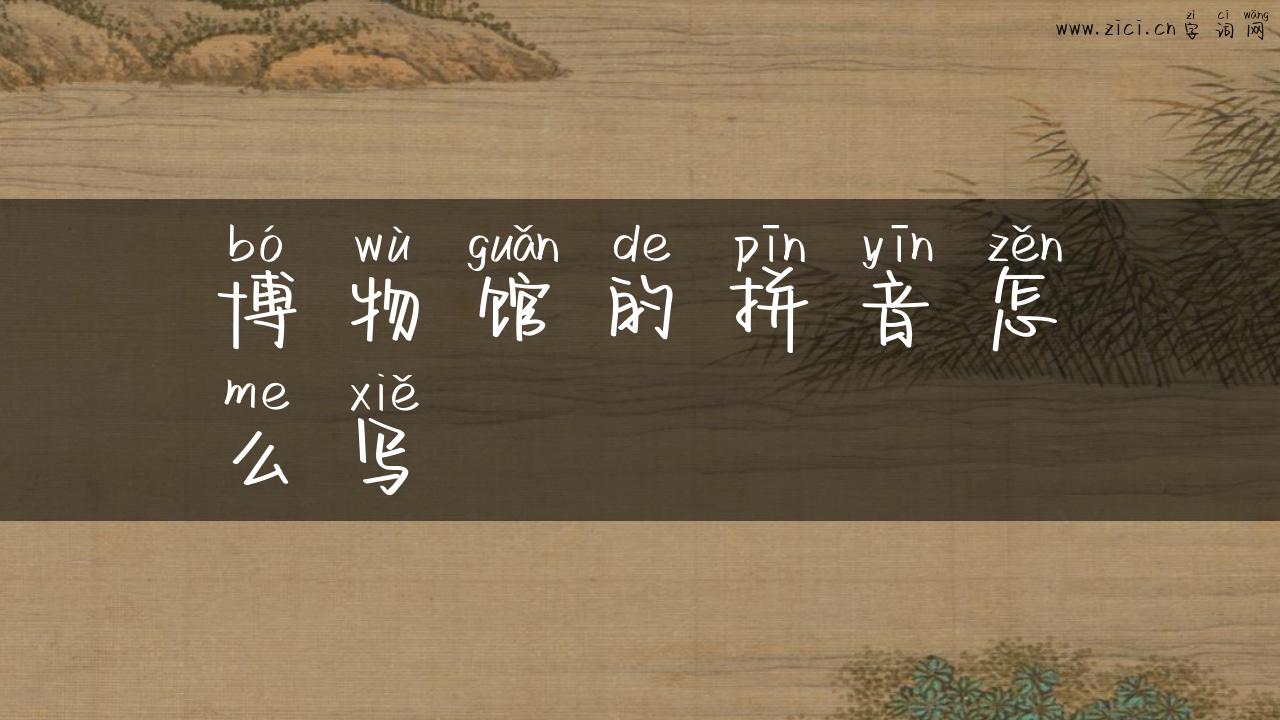 zì cí wǎng
www.zici.cn 字词网
bó wù guǎn de pīn yīn zěn
博物馆的拼音怎
me xiě
么写